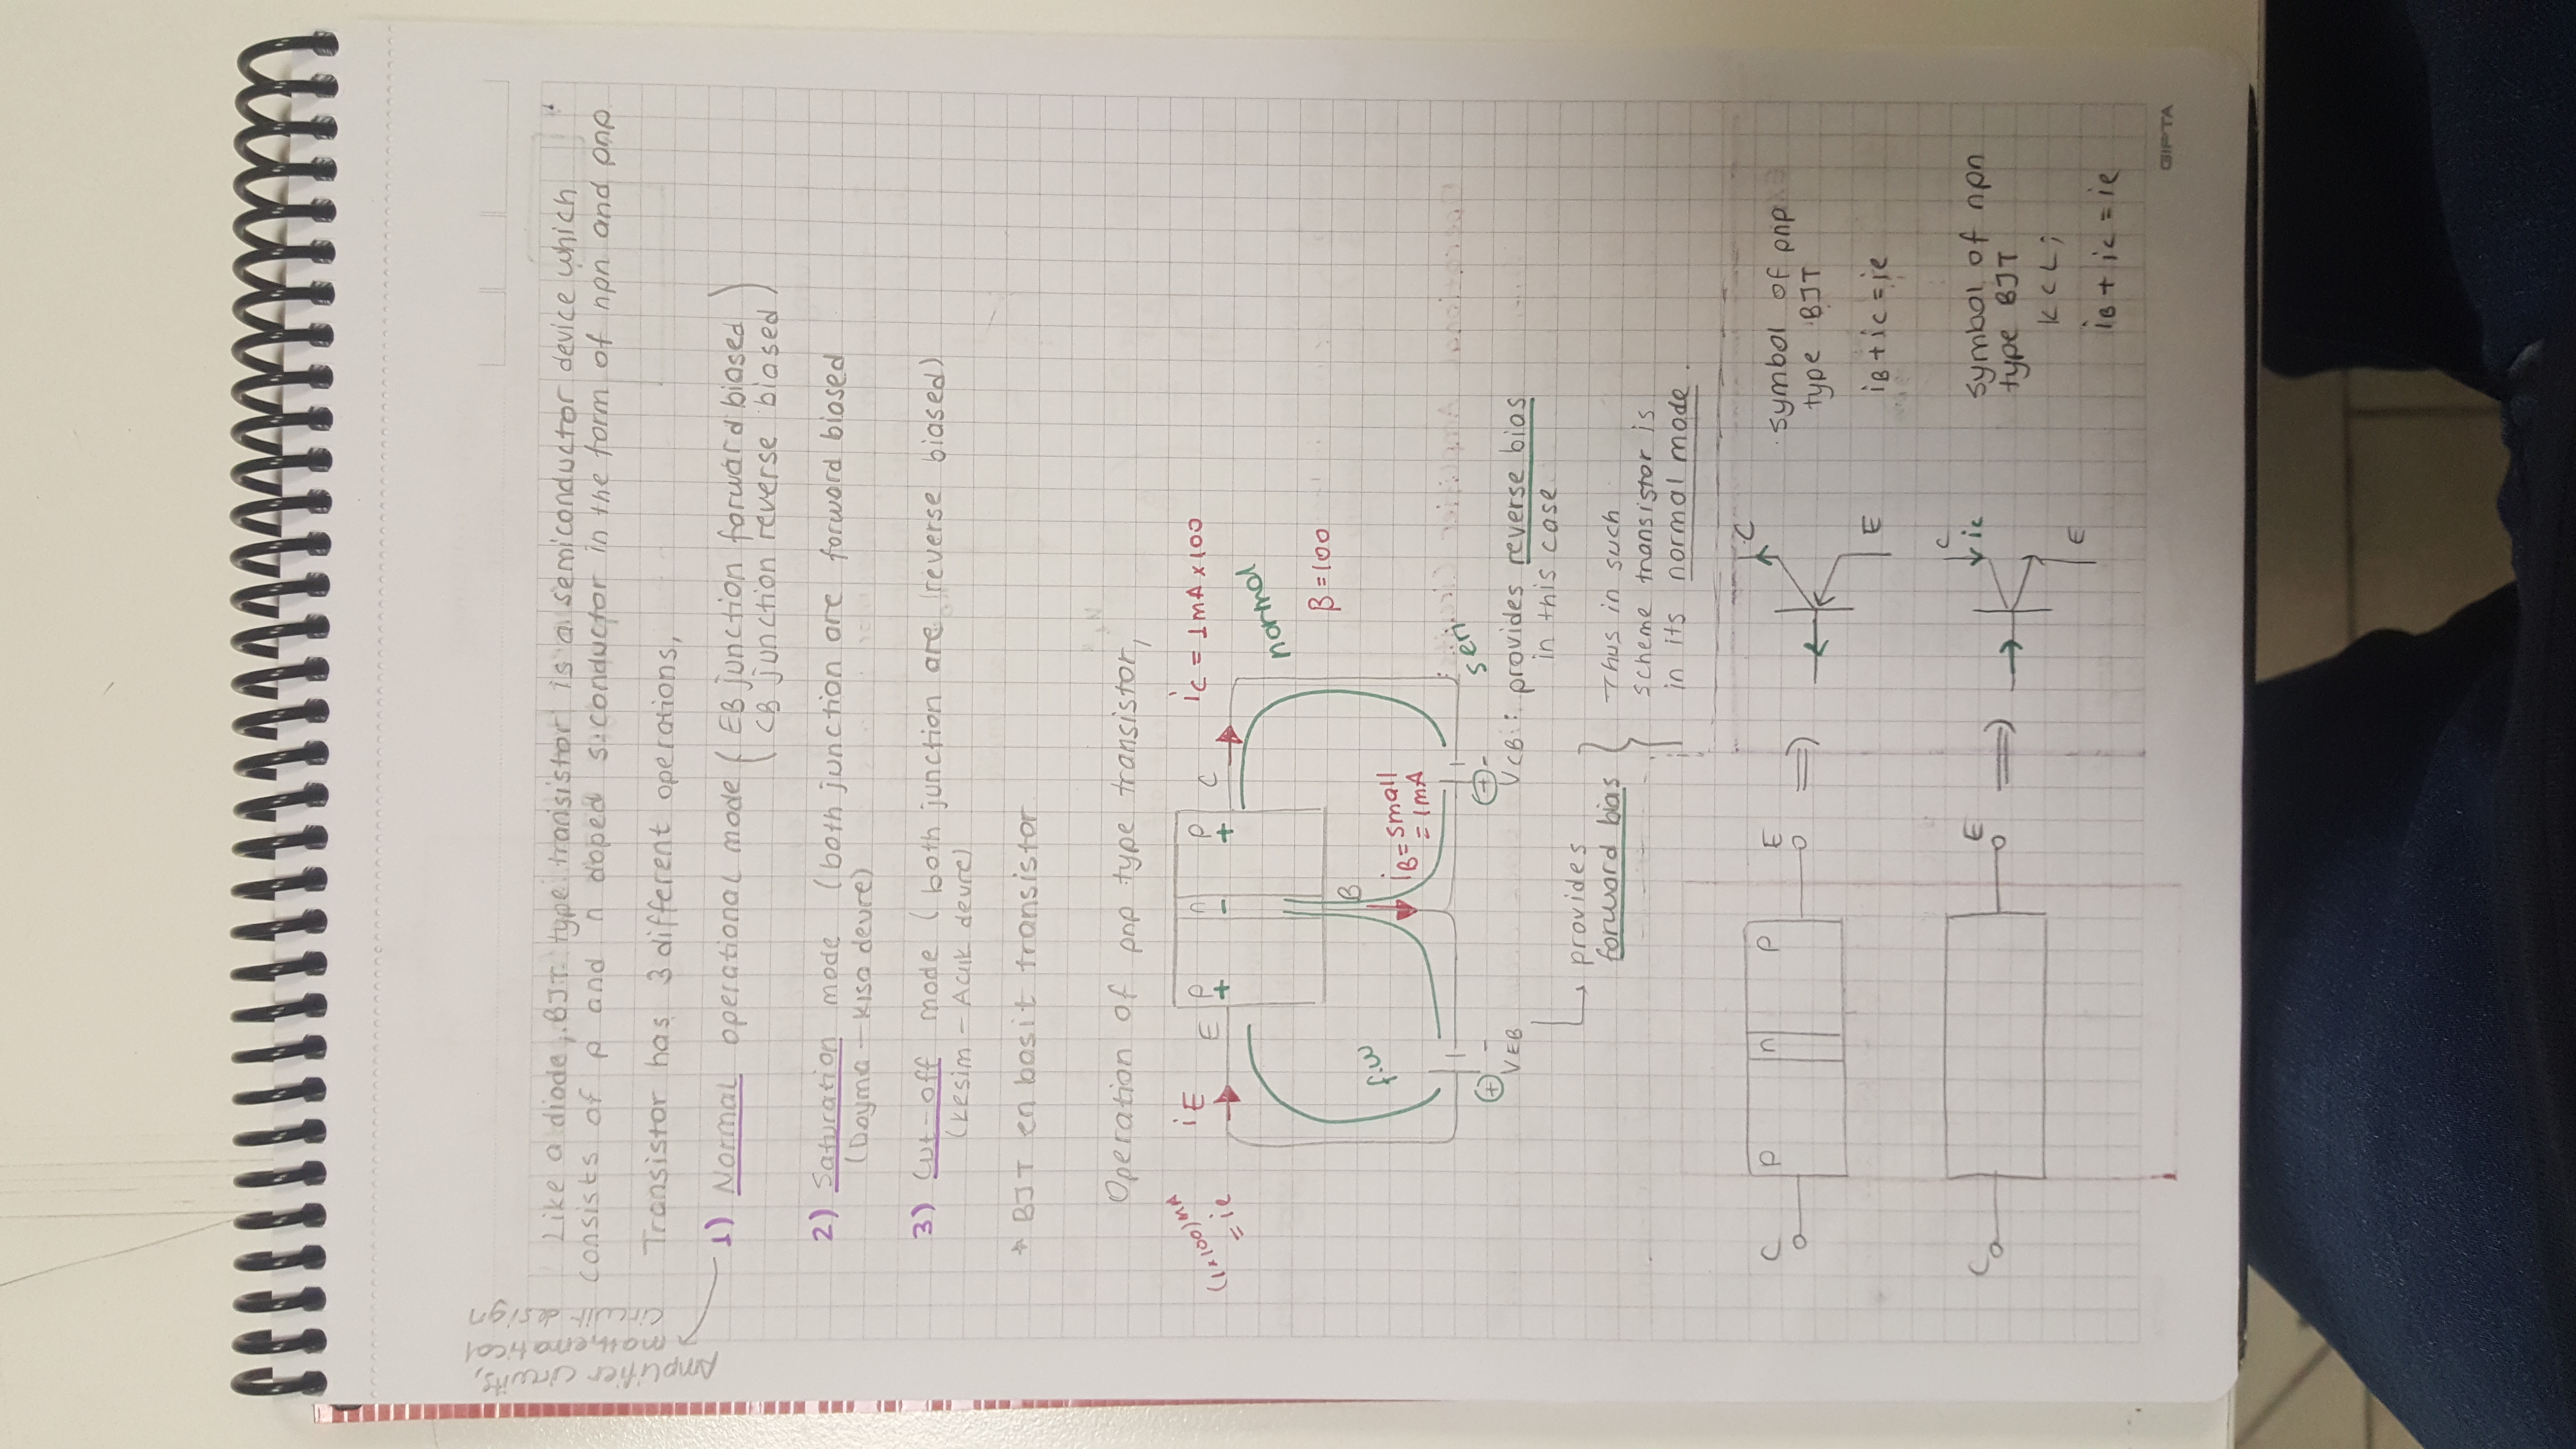 Amplifier circuits,
mathematical
circuit design
Like a diode, BJT type transistor is a semiconductor device which
consists of p and n doped s.conductor in the form of npn and pnp
Transistor has 3 different operations,
1) Normal operational mode ( EB junction forward biased
CB junction reverse biased )
2) Saturation mode (both junction are forward biased
(Doyma - Kısa devre)
3) Cut-off mode (both junction are reverse biased)
(Kesim - Acık devre)
* BJT en basit transistor
Operation of pnp type transistor,
(1x100)mA
= ie
iE
E
p n p
+ - +
C
iC = 1mA x 100
normal
β = 100
f.w
B
iB = small
= 1mA
seri
+ -
+ -
VEB
VCB : provides reverse bias
in this case
provides
forward bias
Thus in such
scheme transistor is
in its normal mode.
C p n p E ⇒
C
E
symbol of pnp
type BJT
iB + ic = ie
C E ⇒
C
ic
E
symbol of npn
type BJT
KCL;
iB + ic = ie
GIPTA